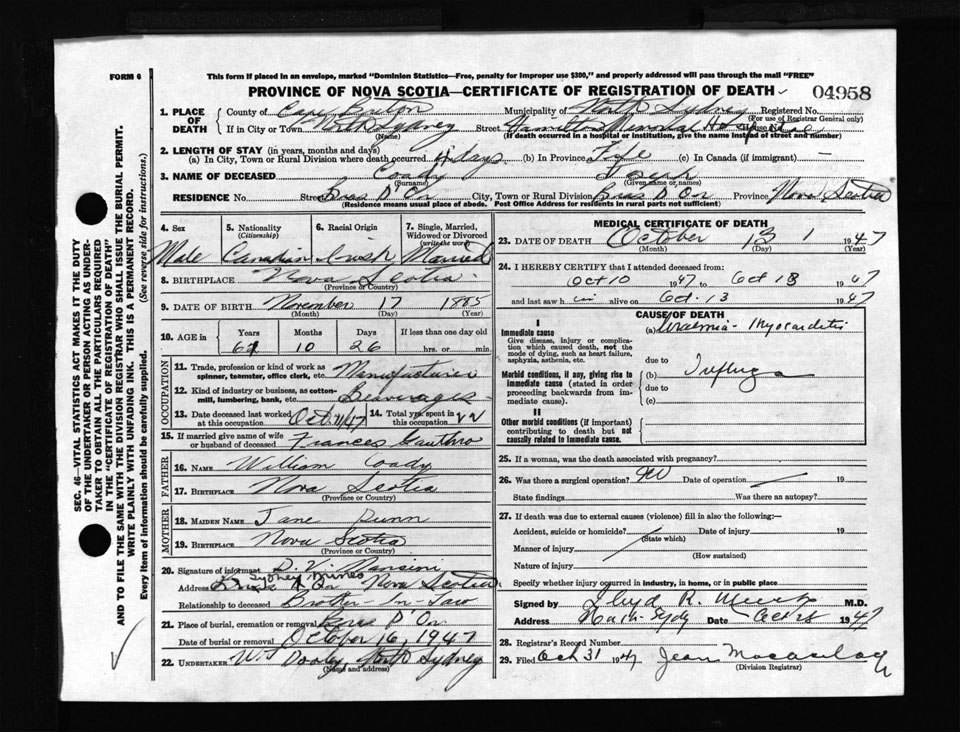 FORM 6
This form if placed in an envelope, marked "Dominion Statistics—Free, penalty for improper use $300," and properly addressed will pass through the mail "FREE"
PROVINCE OF NOVA SCOTIA—CERTIFICATE OF REGISTRATION OF DEATH 04958
1. PLACE OF DEATH
County of Cape Breton Municipality of North Sydney Registered No.
(For use of Registrar General only)
If in City or Town North Sydney Street Hamilton Memorial Hospital
(Name) (If death occurred in a hospital or institution, give the name instead of street and number)
2. LENGTH OF STAY (in years, months and days)
(a) In City, Town or Rural Division where death occurred 4 days (b) In Province Life (c) In Canada (if immigrant) —
3. NAME OF DECEASED Coady Joseph
(Surname) (Given name or names)
RESIDENCE No. Street Bras D'Or City, Town or Rural Division Bras D'Or Province Nova Scotia
(Residence means usual place of abode. Post Office Address for residents in rural parts not sufficient)
4. Sex 5. Nationality (Citizenship) 6. Racial Origin 7. Single, Married, Widowed or Divorced (write the word)
Male Canadian Irish Married
8. BIRTHPLACE Nova Scotia
(Province or Country)
9. DATE OF BIRTH November 17 1885
(Month) (Day) (Year)
10. AGE in Years Months Days If less than one day
10 26 hrs. or min.
OCCUPATION
11. Trade, profession or kind of work as spinner, teamster, office clerk, etc. Manufacturer
12. Kind of industry or business, as cotton-mill, lumbering, bank, etc. Beaverages
13. Date deceased last worked at this occupation Oct. 11/47 14. Total yrs. spent in this occupation 22
15. If married give name of wife or husband of deceased Frances Gauthro
FATHER
16. NAME William Coady
17. BIRTHPLACE Nova Scotia
(Province or Country)
MOTHER
18. MAIDEN NAME Jane Dunn
19. BIRTHPLACE Nova Scotia
(Province or Country)
20. Signature of informant D. V.
Sydney Mines
Address Nova Scotia
Relationship to deceased Brother-In-Law
21. Place of burial, cremation or removal Bras D'Or
Date of burial or removal October 16, 1947
22. UNDERTAKER W. J. Dooley North Sydney
(Name and address)
MEDICAL CERTIFICATE OF DEATH
23. DATE OF DEATH October 13 1947
(Month) (Day) (Year)
24. I HEREBY CERTIFY that I attended deceased from:
Oct 10 1947 to Oct 13 1947
and last saw h im alive on Oct. 13 1947
CAUSE OF DEATH
I
Immediate cause
Give disease, injury or complication which caused death, not the mode of dying, such as heart failure, asphyxia, asthenia, etc.
(a) Uraemia - Myocarditis
due to
Morbid conditions, if any, giving rise to immediate cause (stated in order proceeding backwards from immediate cause).
(b)
due to
(c)
II
Other morbid conditions (if important) contributing to death but not causally related to immediate cause.
25. If a woman, was the death associated with pregnancy?
26. Was there a surgical operation? no Date of operation 19
State findings Was there an autopsy?
27. If death was due to external causes (violence) fill in also the following:—
Accident, suicide or homicide? Date of injury 19
(State which)
Manner of injury
(How sustained)
Nature of injury
Specify whether injury occurred in industry, in home, or in public place
Signed by Lloyd R. M.D.
Address North Sydney Date Oct 1947
28. Registrar's Record Number
29. Filed Oct 31 1947 Jean
(Division Registrar)
SEC. 46—VITAL STATISTICS ACT MAKES IT THE DUTY OF THE UNDERTAKER OR PERSON ACTING AS UNDERTAKER TO OBTAIN ALL THE PARTICULARS REQUIRED IN THE "CERTIFICATE OF REGISTRATION OF DEATH" AND TO FILE THE SAME WITH THE DIVISION REGISTRAR WHO SHALL ISSUE THE BURIAL PERMIT.
WRITE PLAINLY WITH UNFADING INK. THIS IS A PERMANENT RECORD.
Every item of information should be carefully supplied. (See reverse side for instructions.)